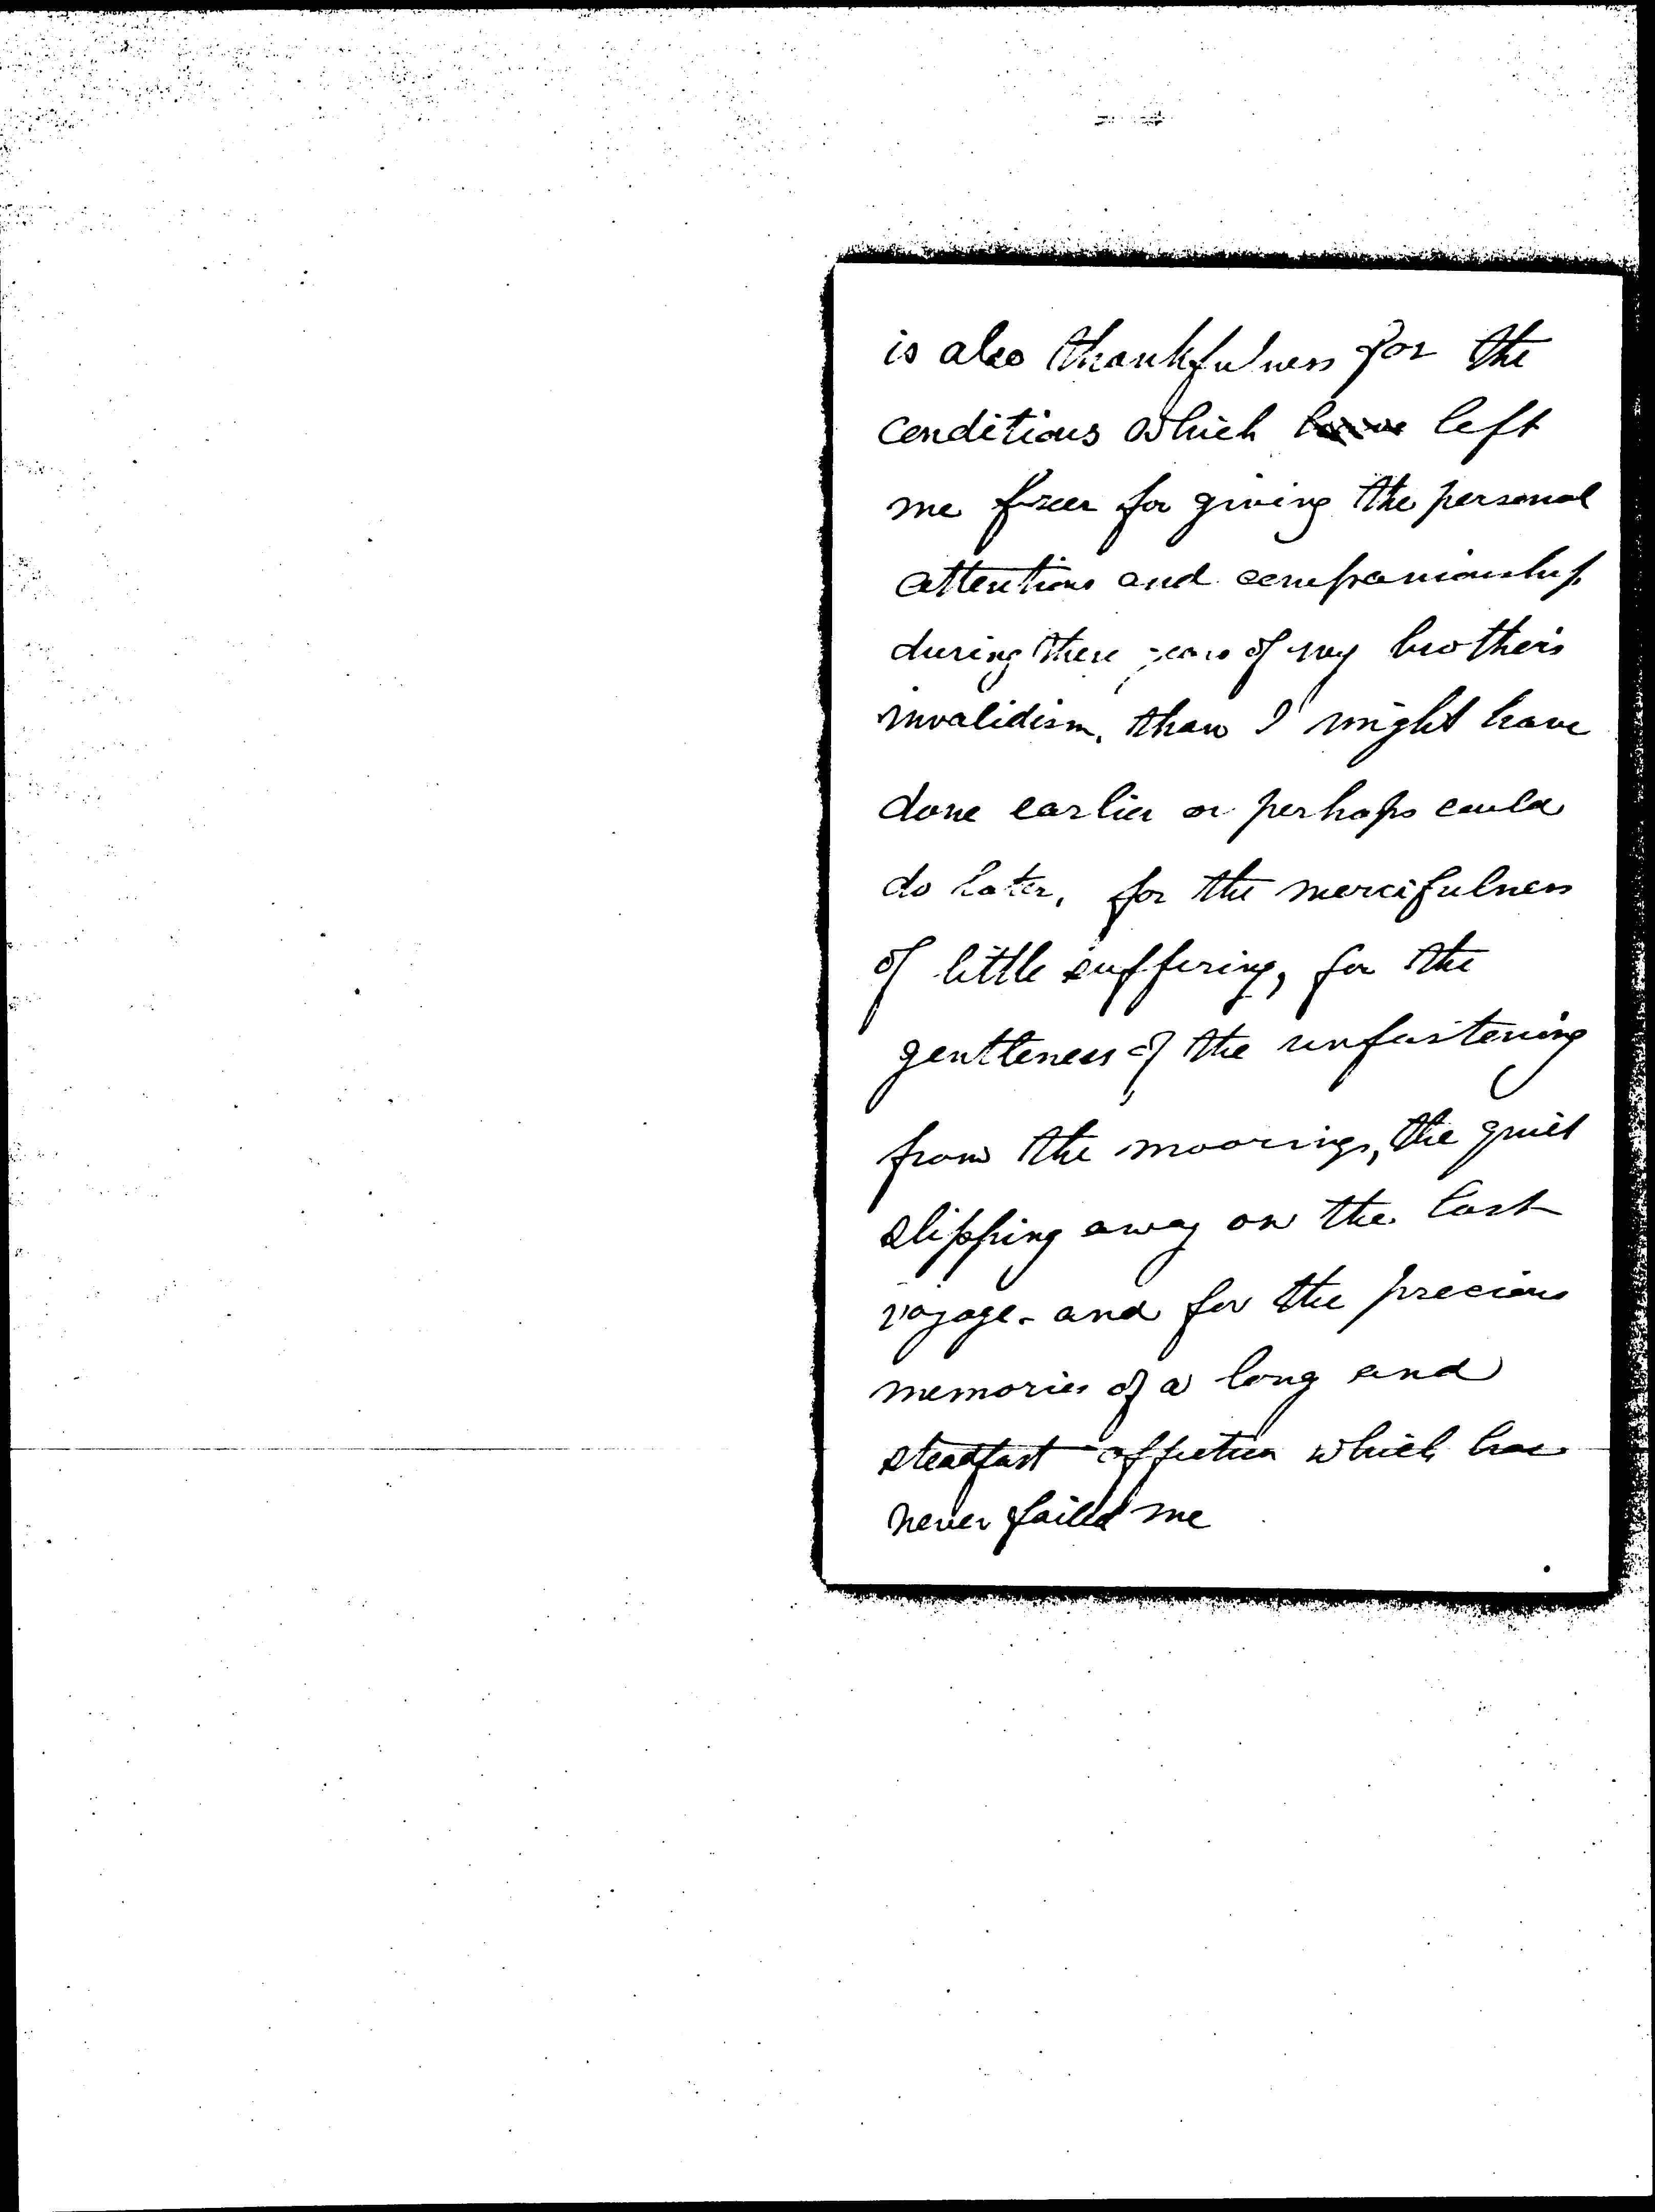 is also thankfulness for the
conditions which have left
me freer for giving the personal
attentions and companionship
during these years of my brother's
invalidism, than I might have
done earlier or perhaps could
do later, for the mercifulness
of little suffering, for the
gentleness of the unfastening
from the moorings, the quiet
slipping away on the last
voyage - and for the precious
memories of a long and
steadfast affection which has
never failed me